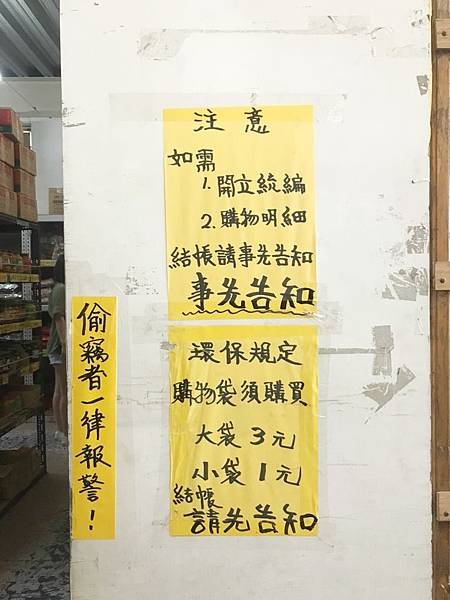 注意
如需
1.開立統編
2.購物明細
結帳請事先告知
事先告知
環保規定
購物袋須購買
大袋3元
小袋1元
結帳
請先告知
偷竊者一律報警!